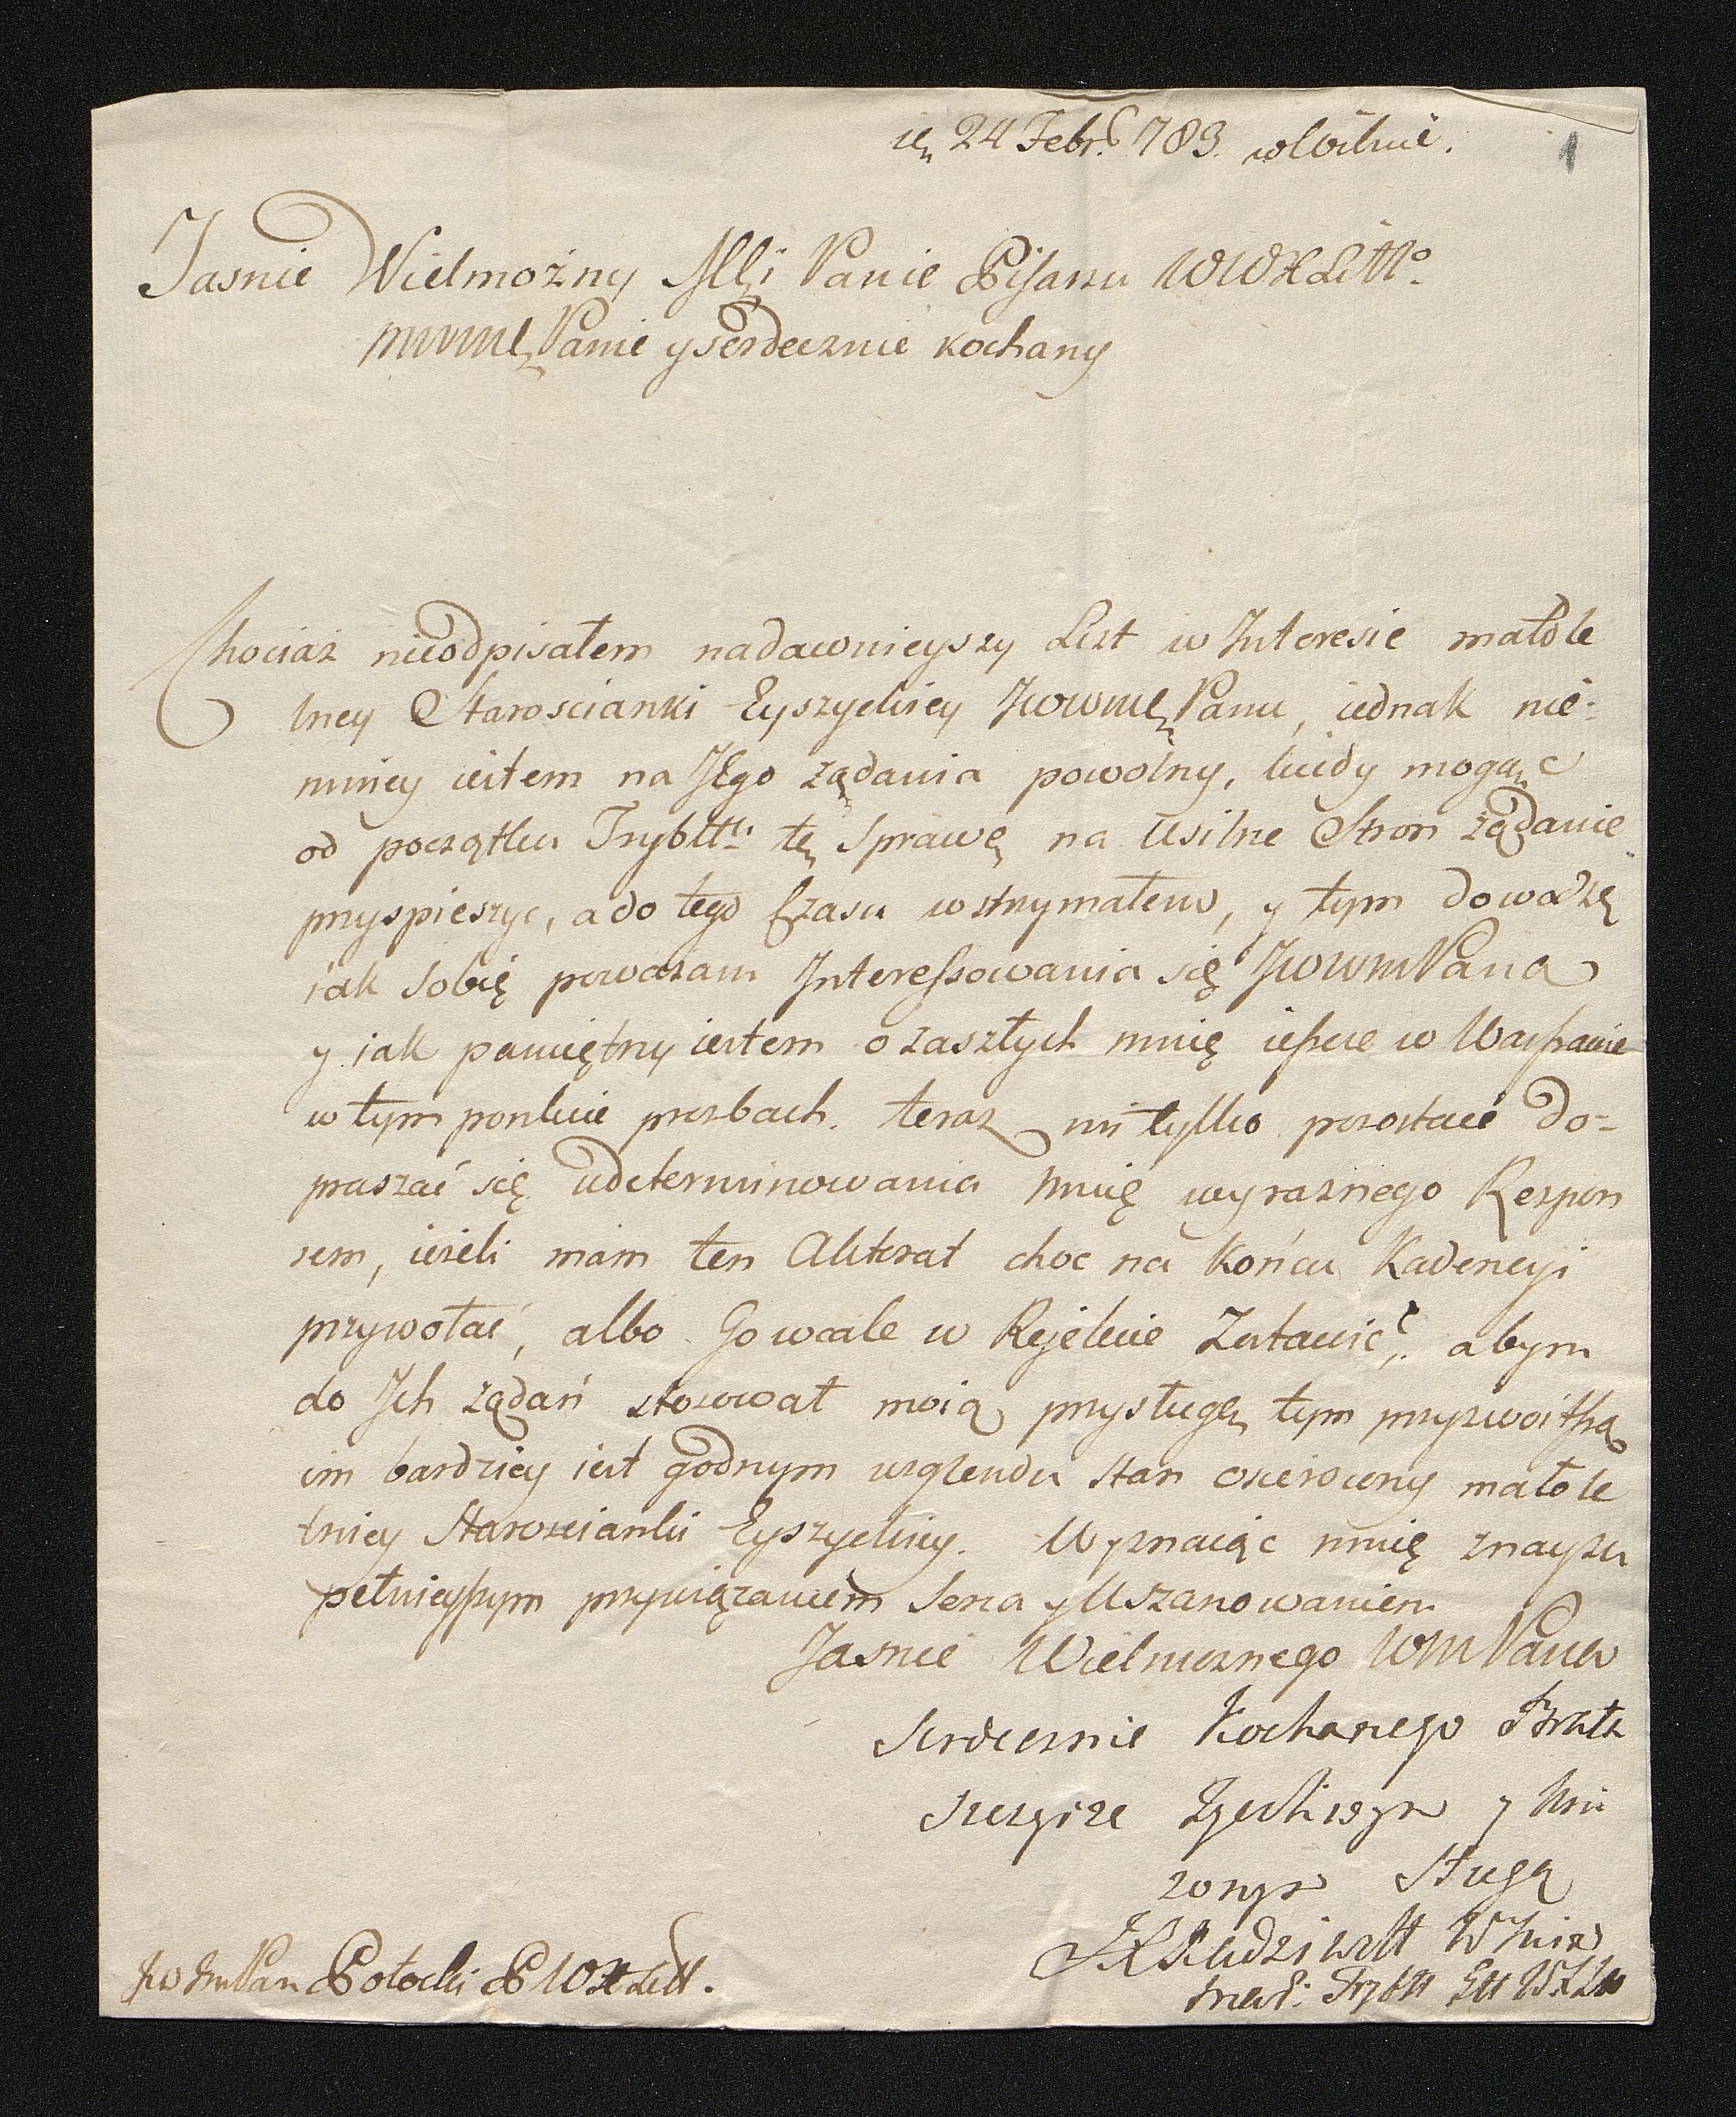 24 Febr. 783. w Wilnie.
1
Jasnie Wielmożny Mći Panie Pisarzu WWXLitto
Panie y serdecznie kochany
Chociaz nieodpisałem nadawnieyszy List w Interesie małole
tney Starościanki Eyszyskiey JWWM Panu, iednak nie-
mniey iestem na Jego ządania powolny, kiedy mogąc
od początku Trybłł: tę Sprawę na Usilne Stron ządanie
przyspieszyc, a do tego Czasu wstrzymałem, y tym dowodzę
iak Sobię powazam Interessowania się JWWMPana
y iak pamiętny iestem o zaszłych mnię ieszcze w Warszawie
w tym punkcie prozbach. teraz mi tylko pozostaie do-
praszać się udeterminowania mnię wyraznego Respon
sem, iezeli mam ten Akterat choc na końcu Kadencyi
przywołać, albo Go wcale w Rejestrze Zostawić, abym
do Jch ządań stosował moią przysługę tym przyzwoitszą
im bardziey iest godnym wzglendu stan osierocony małole
tniey Starościanki Eyszyskiey. Wyznaiąc mnię znayzu
pełnieyszym przywiązaniem Serca y Uszanowaniem
Jasnie Wielmoznego WMPana
Serdecznie Kochanego Brata
szczyrze Zyczliwym y Uni
zonym Sługą
Radziwiłł
JW Pan Potocki P WXLitt.